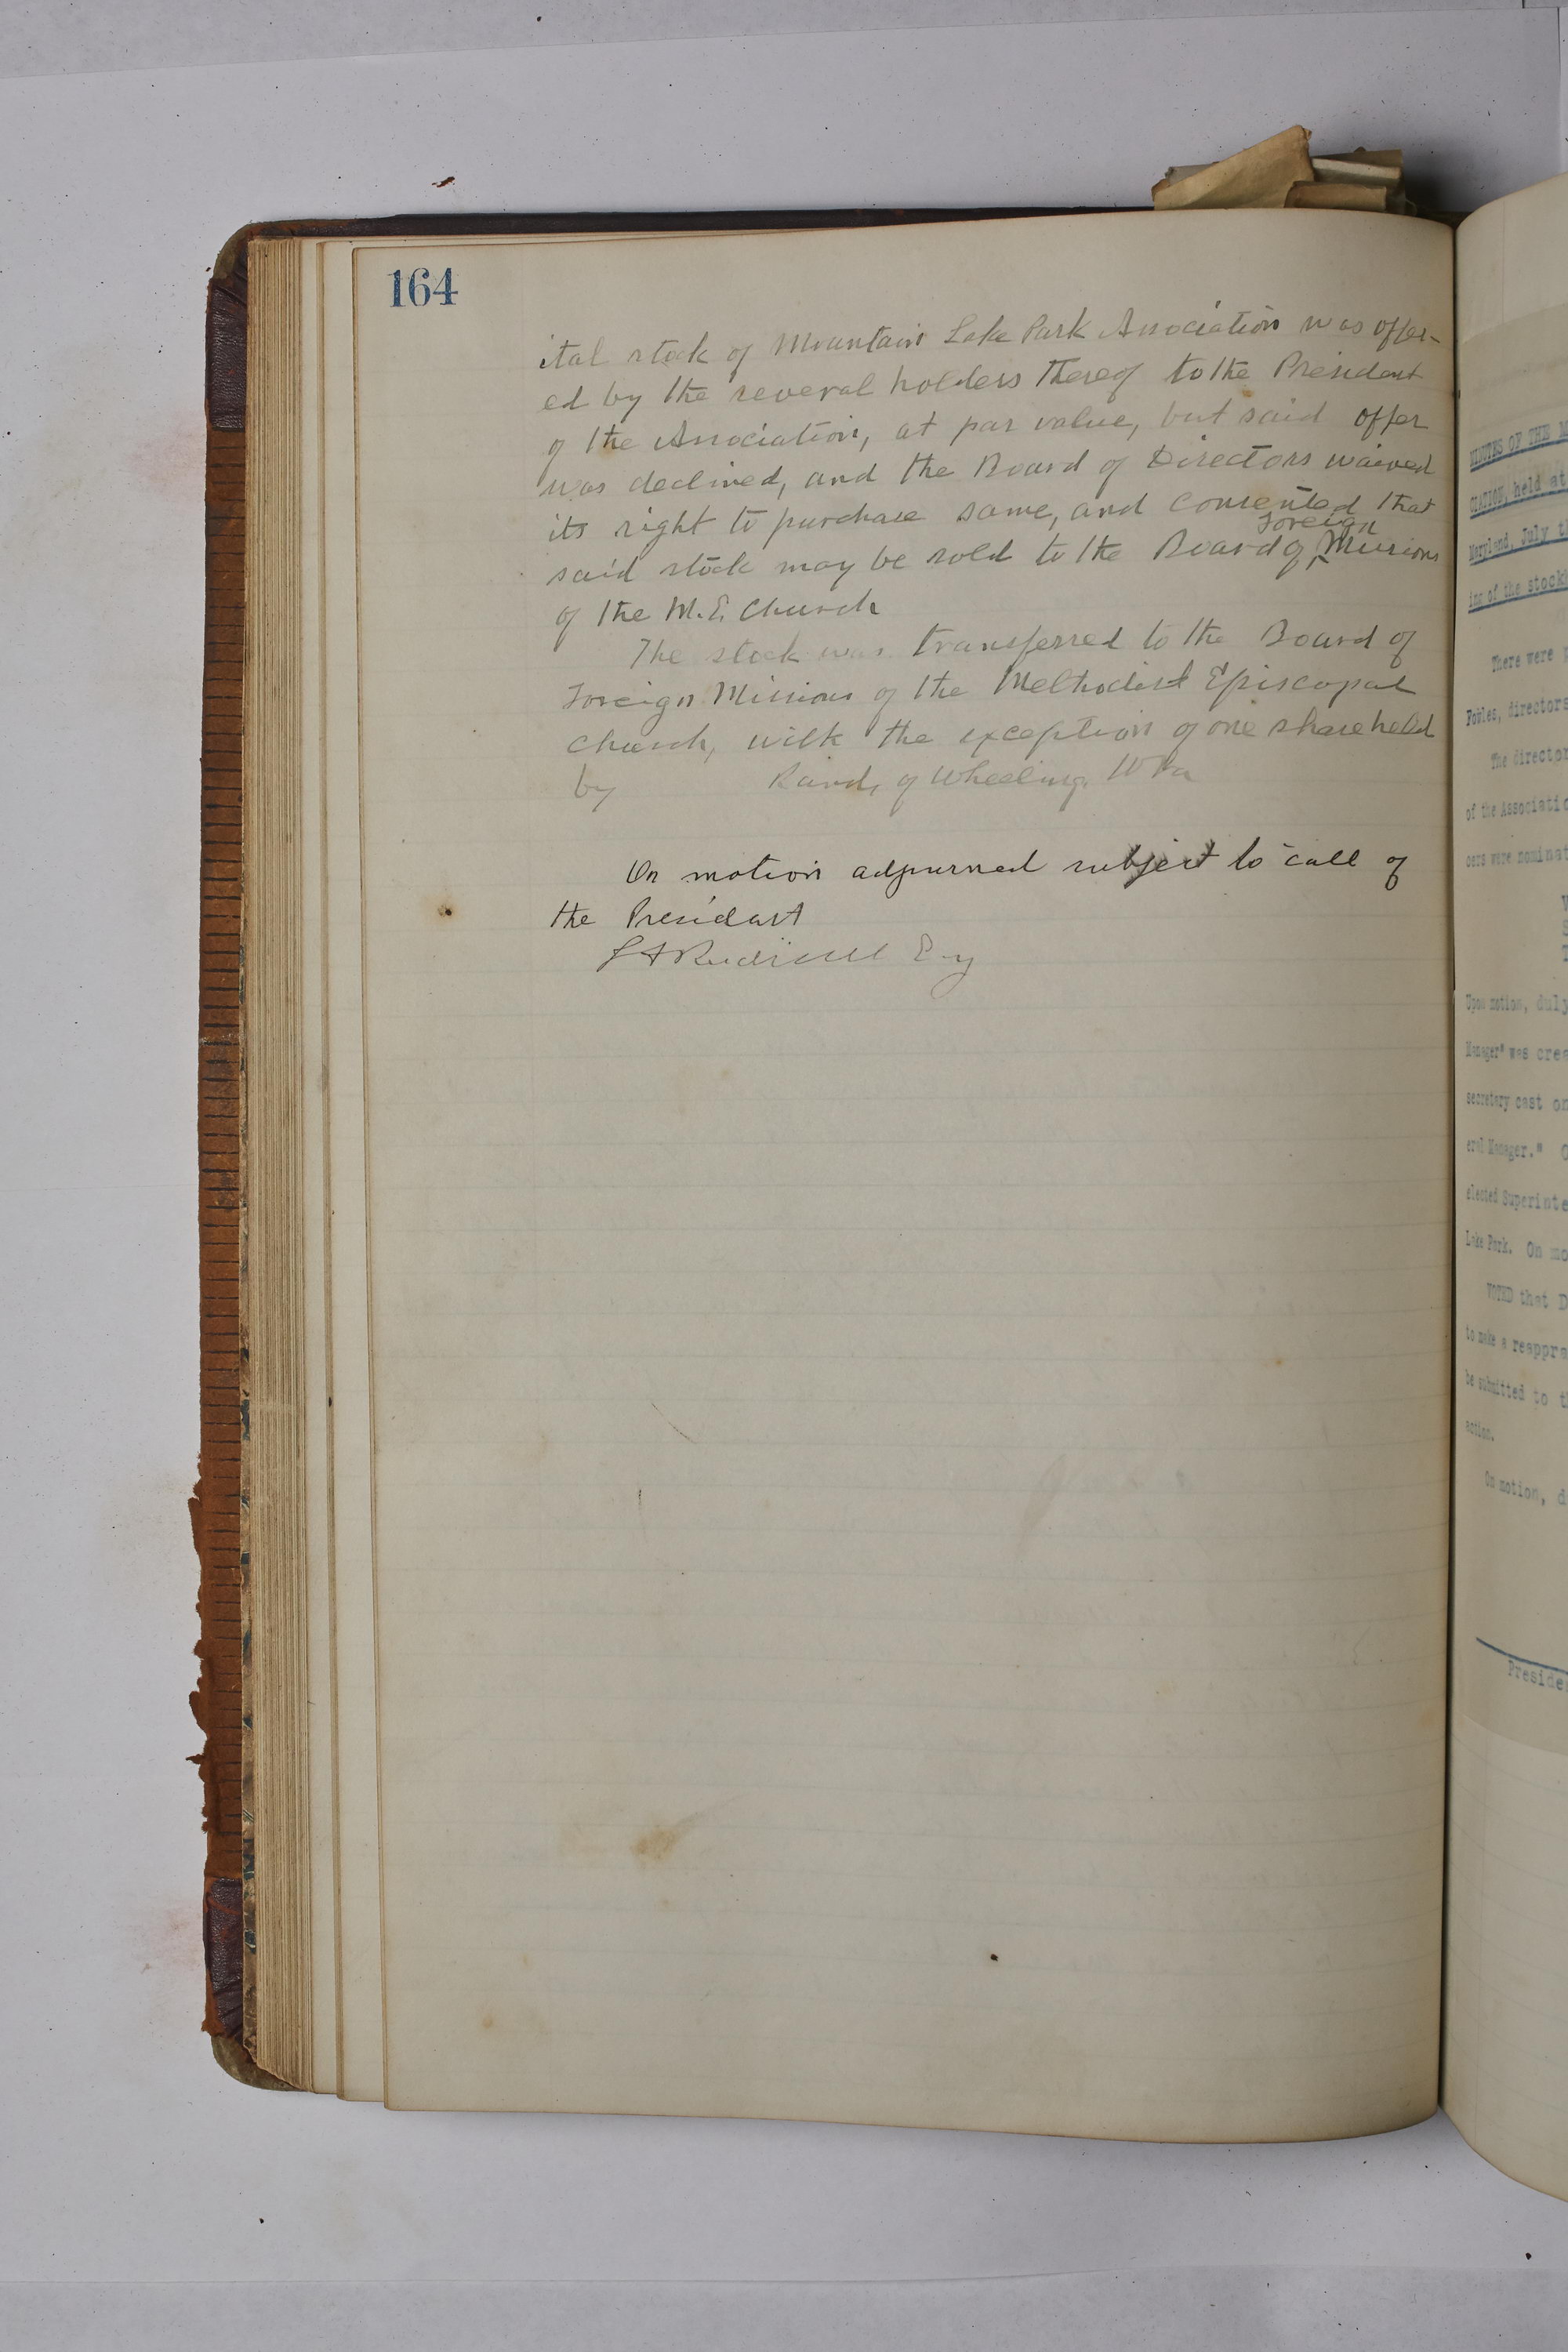 164
ital stock of Mountain Lake Park Association was offer-
ed by the several holders thereof to the President
of the Association, at par value, but said offer
was declined, and the Board of Directors waived
its right to purchase same, and consented that
said stock may be sold to the Board of Foreign Missions
of the M.E. Church
The stock was transferred to the Board of
Foreign Missions of the Methodist Episcopal
Church, with the exception of one share held
by of Wheeling, W Va
On motion adjourned subject to call of
the President
MINUTES OF THE M
CIATION, held at
Maryland, July t
ing of the stock
There were p
Fowles, directors
The director
of the Associatio
cers were nominat
V
S
T
Upon motion, duly
Manager" was crea
secretary cast on
eral Manager." O
elected Superinte
Lake Park. On mo
VOTED that D
to make a reappra
be submitted to th
action.
On motion, d
Preside